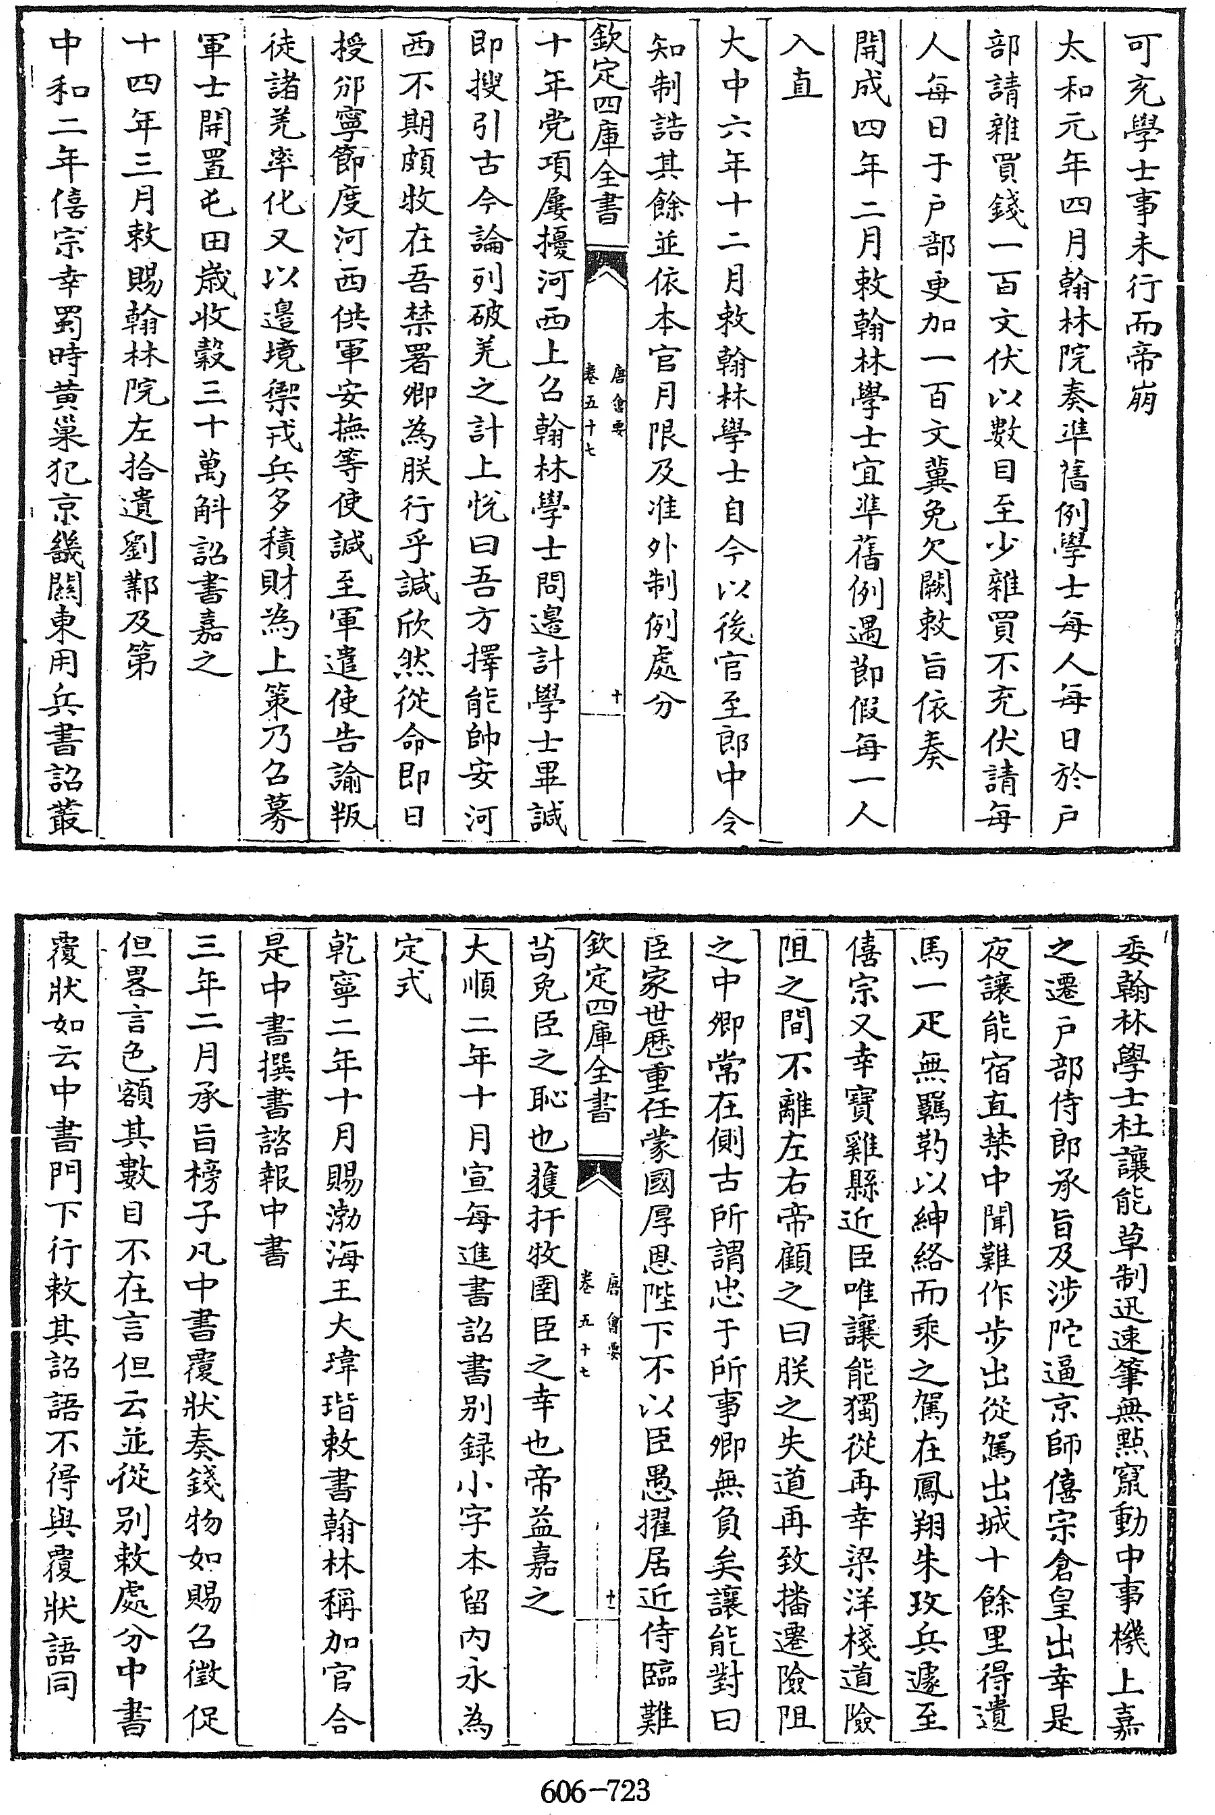 可充學士事未行而帝崩
太和元年四月翰林院奏準舊例學士每人每日於户
部請雜買錢一百文伏以數目至少雜買不充伏請每
人每日于户部更加一百文冀免欠闕敕旨依奏
開成四年二月敕翰林學士宜準舊例遇節假每一人
入直
大中六年十二月敕翰林學士自今以後官至郎中令
知制誥其餘並依本官月限及准外制例處分
欽定四庫全書
唐會要
卷五十七
十
十年党項屢擾河西上召翰林學士問邉計學士畢諴
即搜引古今論列破羌之計上悦曰吾方擇能帥安河
西不期頗牧在吾禁署卿為朕行乎諴欣然從命即日
授邠寧節度河西供軍安撫等使諴至軍遣使告諭叛
徒諸羌率化又以邉境禦戎兵多積財為上策乃召募
軍士開置屯田歲收穀三十萬斛詔書嘉之
十四年三月敕賜翰林院左拾遺劉鄴及第
中和二年僖宗幸蜀時黄巢犯京畿關東用兵書詔叢
委翰林學士杜讓能草制迅速筆無點竄動中事機上嘉
之遷户部侍郎承旨及涉陀逼京師僖宗倉皇出幸是
夜讓能宿直禁中聞難作步出從駕出城十餘里得遺
馬一疋無羈勒以紳絡而乘之駕在鳳翔朱玫兵遽至
僖宗又幸寶雞縣近臣唯讓能獨從再幸梁洋棧道險
阻之間不離左右帝顧之曰朕之失道再致播遷險阻
之中卿常在側古所謂忠于所事卿無負矣讓能對曰
臣家世歴重任蒙國厚恩陛下不以臣愚擢居近侍臨難
欽定四庫全書
唐會要
卷五十七
十一
茍免臣之恥也獲扞牧圉臣之幸也帝益嘉之
大順二年十月宣每進書詔書别録小字本留内永為
定式
乾寧二年十月賜渤海王大瑋瑎敕書翰林稱加官合
是中書撰書諮報中書
三年二月承旨榜子凡中書覆狀奏錢物如賜召徵促
但畧言色額其數目不在言但云並從别敕處分中書
覆狀如云中書門下行敕其詔語不得與覆狀語同
606-723